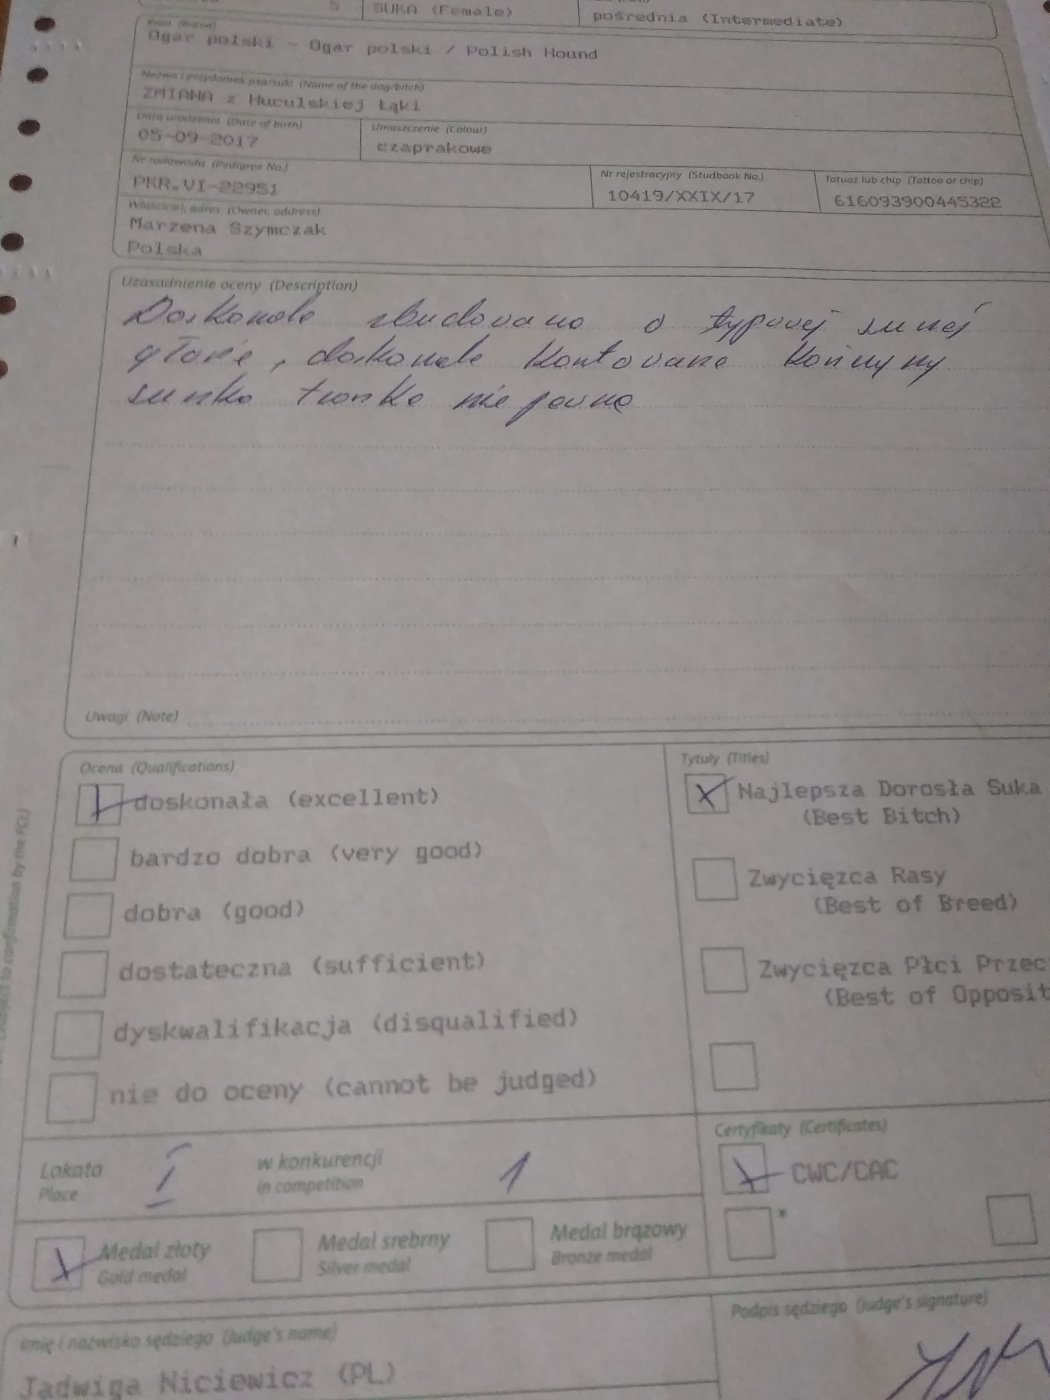 5 SUKA (Female) pośrednia (Intermediate)
Rasa (Breed)
Ogar polski - Ogar polski / Polish Hound
Nazwa i przydomek psa/suki (Name of the dog/bitch)
ZMIANA z Huculskiej Łąki
Data urodzenia (Date of birth) Umaszczenie (Colour)
05-09-2017 czaprakowe
Nr rodowodu (Pedigree No.) Nr rejestracyjny (Studbook No.) Tatuaż lub chip (Tattoo or chip)
PKR.VI-22951 10419/XXIX/17 616093900445322
Właściciel, adres (Owner, address)
Marzena Szymczak
Polska
Uzasadnienie oceny (Description)
Doskonale zbudowana o typowej suczej
głowie, doskonale kątowane kończyny
sunka troszkę niepewna
Uwagi (Note)
Ocena (Qualifications) Tytuły (Titles)
doskonała (excellent) Najlepsza Dorosła Suka
(Best Bitch)
bardzo dobra (very good) Zwycięzca Rasy
dobra (good) (Best of Breed)
dostateczna (sufficient) Zwycięzca Płci Przec
(Best of Opposit
dyskwalifikacja (disqualified)
nie do oceny (cannot be judged)
Certyfikaty (Certificates)
Lokata I w konkurencji 1 CWC/CAC
Place in competition
*
Medal złoty Medal srebrny Medal brązowy
Gold medal Silver medal Bronze medal
Imię i nazwisko sędziego (Judge's name) Podpis sędziego (Judge's signature)
Jadwiga Niciewicz (PL)
subject to confirmation by the FCI